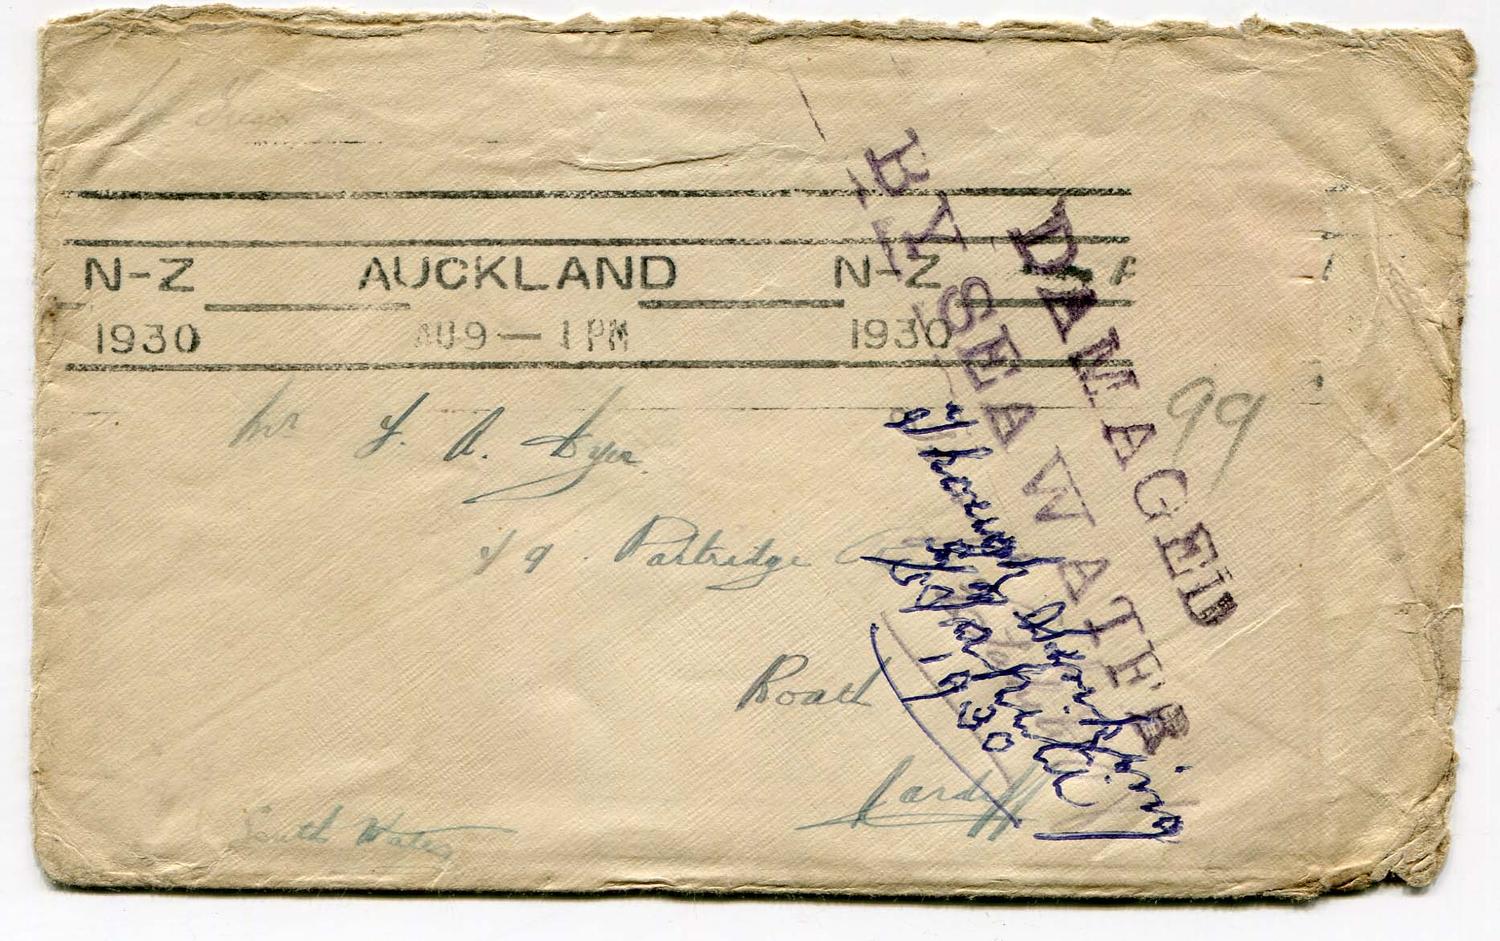 N-Z AUCKLAND N-Z
1930 AU 9 — 1 PM 1930
DAMAGED
BY SEA WATER
99
Mr F. A. Dyer
49. Partridge
Roath
Cardiff
South Wales
through
Sinking
of Tahiti
1930